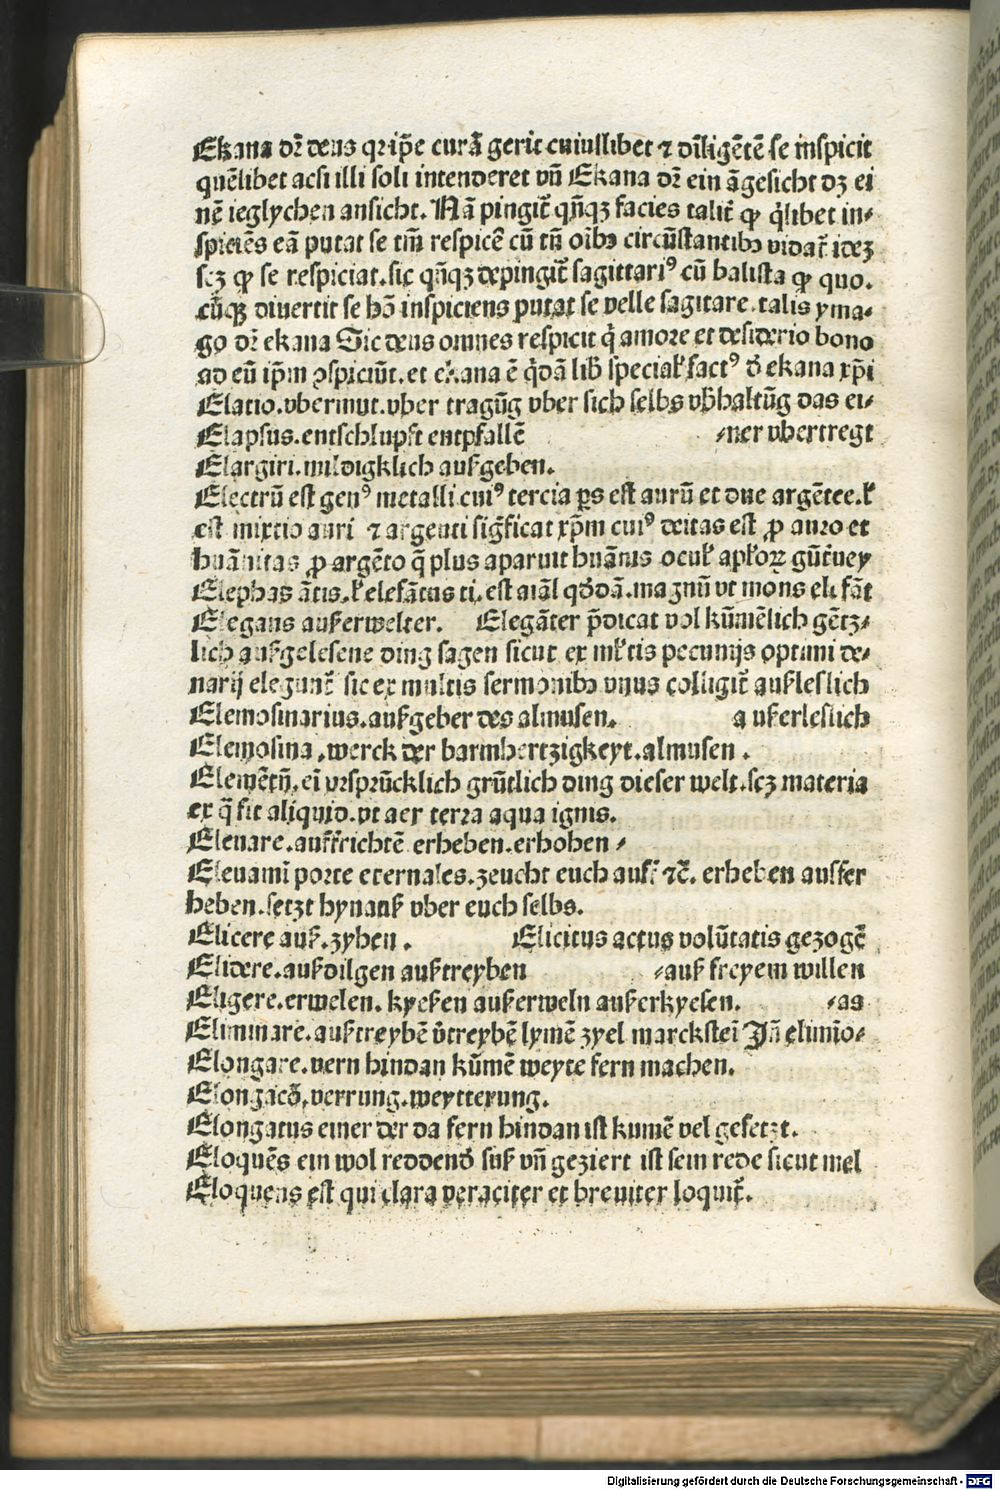 Ekana dr̃ deus qr ip̃e curã gerit cuiuslibet ⁊ dĩligẽtẽ se inspicit
quẽlibet acsi illi soli intenderet vñ Ekana dr̃ ein ãgesicht dz ei
nẽ ieglychen ansicht. Nã pingit̃ qñqz facies talit̃ ꝙ q̇libet in⸗
spiciẽs eã putat se tm̃ respicẽ cũ tñ oĩbꝫ circũstantibꝫ vidat̃ idẽz
scz ꝙ se respiciat. sic qñqz depingit̃ sagittariꝰ cũ balista ꝙ quo.
cũqz diuertit se hõ inspiciens putat se velle sagitare. talis yma⸗
go dr̃ ekana Sic deus omnes respicit q̇ amore et desiderio bono
ad eũ ip̃m ꝯspiciũt. et ekana ẽ q̇dã lib̃ specialꝭ factꝰ d̃ ekana xp̃i
Elatio. vbermut. vber tragũg vber sich selbs vb̃haltũg das ei⸗
Elapsus. entschlupft entpfallẽ ⸗ner vbertregt
Elargiri. mildigklich außgeben.
Electrũ est genꝰ metalli cuiꝰ tercia ꝑs est aurũ et due argẽtee. ł
est mixtio auri ⁊ argenti sig̃ficat xp̃m cuiꝰ deitas est ꝓ auro et
huãnitas ꝓ argẽto q̃ plus aparuit huãnis oculꝭ apl̃oꝝ
Elephas ãtis. ł elefãtus ti. est aial̃ qd̃dã. magnũ vt mons eli fãt
Elegans außerwelter. Elegãter p̃dicat vol kũmẽlich gẽtz⸗
lich außgelesene ding sagen sicut ex mlꝭtis pecunijs optimi de⸗
narij elegunt̃ sic ex multis sermonibꝫ vnus colligit̃ außleslich
Elemosinarius. außgeber des almusen. a ußerleslich
Elemosina. werck der barmhertzigkeyt. almusen.
Elemẽtũ. eĩ vrsprũcklich grũtlich ding dieser welt. scz materia
ex q̃ fit aliquid. vt aer terra aqua ignis.
Eleuare. auffrichtẽ erheben. erhohen ⸗
Eleuami porte eternales. zeucht euch auff ⁊c̃. erheben ausser
heben. setzt hynauß vber euch selbs.
Elicere auß. zyhen. Elicitus actus volũtatis gezogẽ
Elidere. außdilgen außtreyben ⸗auß freyem willen
Eligere. erwelen. kyesen außerweln außerkyesen. ⸗as
Eliminare. außtreybẽ v̇treybẽ lymẽ zyel marcksteĩ Jñ elimĩo⸗
Elongare. vern hindan kũmẽ weyte fern machen.
Elongacõ. verrung. weytterung.
Elongatus einer der da fern hindan ist kumẽ vel gesetzt.
Eloquẽs ein wol reddend̃ suß vñ geziert ist sein rede sicut mel
Eloquens est qui clara veraciter et breuiter loquit̃.
Digitalisierung gefördert durch die Deutsche Forschungsgemeinschaft - DFG